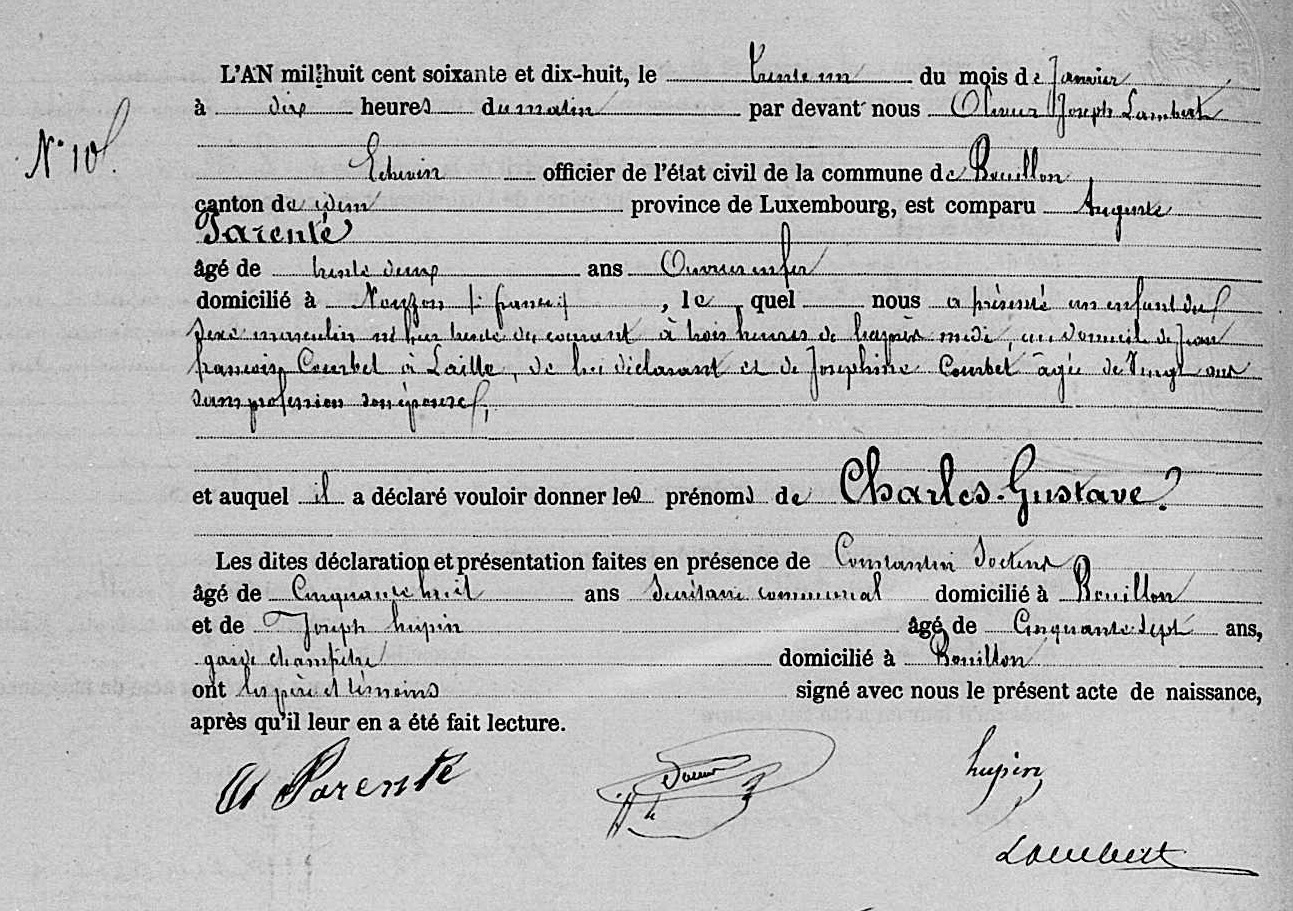 L'AN mil huit cent soixante et dix-huit, le trente un du mois de Janvier
à dix heures du matin par devant nous Olivier Joseph Lambert
N° 10
Echevin officier de l'état civil de la commune de Bouillon
canton de idem province de Luxembourg, est comparu Auguste
Parenté
âgé de trente deux ans Ouvrier en fer
domicilié à Nouzon (france) , le quel nous a présenté un enfant du
sexe masculin né hier trente du courant à trois heures de l'après midi, au domicile de Jean
françois Courbet à Laille, de lui déclarant et de Joséphine Courbet âgée de Vingt ans
sans profession son épouse,
et auquel il a déclaré vouloir donner les prénoms de Charles-Gustave
Les dites déclaration et présentation faites en présence de Constantin
âgé de Cinquante huit ans Secrétaire communal domicilié à Bouillon
et de Joseph hupin âgé de Cinquante sept ans,
garde champêtre domicilié à Bouillon
ont les père et témoins signé avec nous le présent acte de naissance,
après qu'il leur en a été fait lecture.
A Parenté
hupin
Lambert